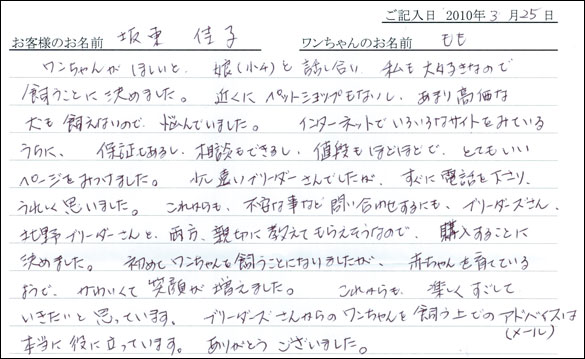 ご記入日 2010年 3 月 25 日
お客様のお名前 坂東 佳子 ワンちゃんのお名前 もも
ワンちゃんがほしいと、娘(小4)と話し合い 私も大好きなので
飼うことに決めました。 近くにペットショップもないし、あまり高価な
犬も飼えないので、悩んでいました。 インターネットでいろいろなサイトをみている
うちに、 保証もあるし、相談もできるし、値段もほどほどで、とてもいい
ページをみつけました。 少し遠いブリーダーさんでしたが、すぐに電話を下さり、
うれしく思いました。 これからも、不安な事など問い合わせするにも、ブリーダーズさん、
北野ブリーダーさんと、両方、親切に教えてもらえそうなので、購入することに
決めました。 初めてワンちゃんを飼うことになりましたが、 赤ちゃんを育てている
ようで、かわいくて笑顔が増えました。 これからも、楽しくすごして
いきたいと思っています。 ブリーダーズさんからのワンちゃんを飼う上でのアドバイスは
(メール)
本当に役に立っています。ありがとうございました。